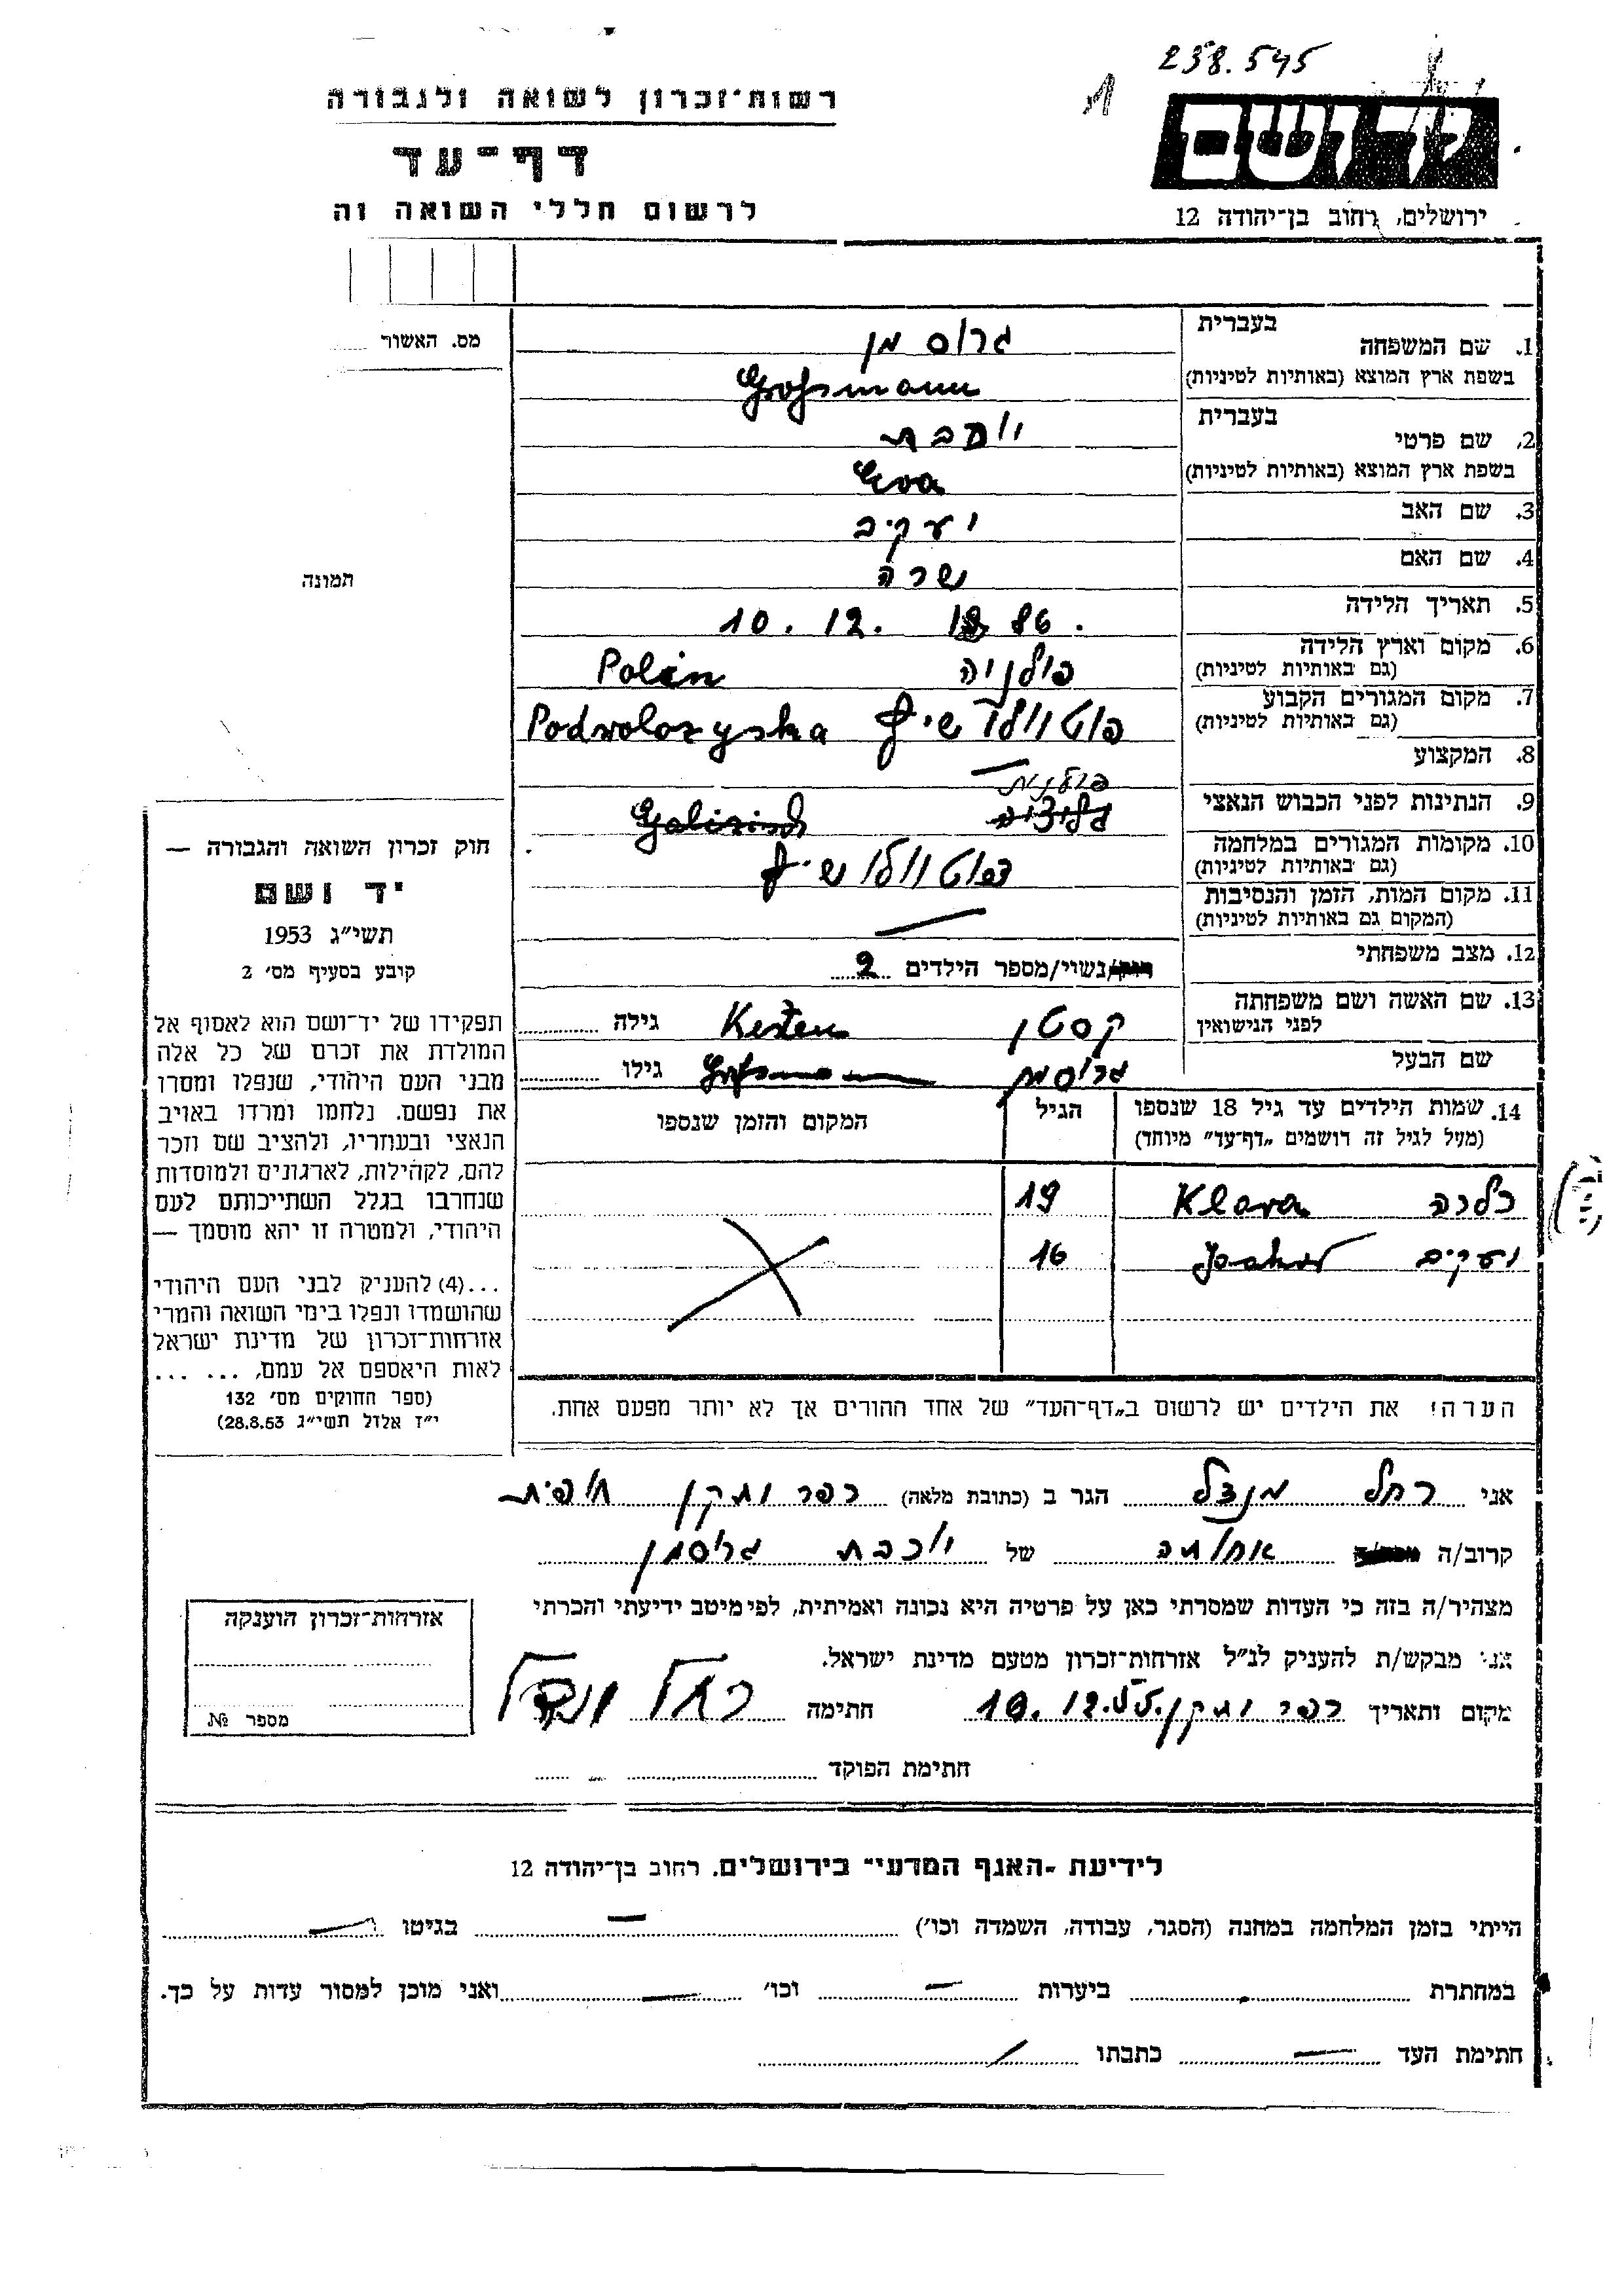 238.545
1
יד ושם
רשות־זכרון לשואה ולגבורה
דף־עד
לרשום חללי השואה וה
ירושלים, רחוב בן־יהודה 12
מס. האשור
בעברית
1. שם המשפחה
גרוס מן
בשפת ארץ המוצא (באותיות לטיניות)
Großmann
בעברית
2. שם פרטי
יוכבת
בשפת ארץ המוצא (באותיות לטיניות)
Eva
3. שם האב
יעקיב
4. שם האם
שרה
תמונה
5. תאריך הלידה
10. 12. 1886.
6. מקום וארץ הלידה
(גם באותיות לטיניות)
פולניה Polen
7. מקום המגורים הקבוע
(גם באותיות לטיניות)
Podwoloczyska
8. המקצוע
9. הנתינות לפני הכבוש הנאצי
פולנית
10. מקומות המגורים במלחמה
(גם באותיות לטיניות)
11. מקום המות, הזמן והנסיבות
(המקום גם באותיות לטיניות)
12. מצב משפחתי
נשוי/מספר הילדים 2
13. שם האשה ושם משפחתה
לפני הנישואין
קסטן Kesten גילה
שם הבעל
גרוסמן Großmann גילו
14. שמות הילדים עד גיל 18 שנספו
(מעל לגיל זה רושמים „דף־עד" מיוחד)
הגיל
המקום והזמן שנספו
כלרה Klara 19
יעקיב Jakob 16
הערה! את הילדים יש לרשום ב„דף־העד" של אחד ההורים אך לא יותר מפעם אחת.
חוק זכרון השואה והגבורה —
יד ושם
תשי"ג 1953
קובע בסעיף מס' 2
תפקידו של יד־ושם הוא לאסוף אל
המולדת את זכרם של כל אלה
מבני העם היהודי, שנפלו ומסרו
את נפשם. נלחמו ומרדו באויב
הנאצי ובעוזריו, ולהציב שם וזכר
להם, לקהילות, לארגונים ולמוסדות
שנחרבו בגלל השתייכותם לעם
היהודי, ולמטרה זו יהא מוסמך —
...(4) להעניק לבני העם היהודי
שהושמדו ונפלו בימי השואה והמרי
אזרחות־זכרון של מדינת ישראל
לאות היאספם אל עמם, ... ...
(ספר החוקים מס' 132
י"ז אלול תשי"ג 28.8.53)
אני רחל מנדל הגר ב (כתובת מלאה) כפר ותקן
קרוב/ה של יוכבת גרוסמן
מצהיר/ה בזה כי העדות שמסרתי כאן על פרטיה היא נכונה ואמיתית, לפי מיטב ידיעתי והכרתי
אני מבקש/ת להעניק לנ"ל אזרחות־זכרון מטעם מדינת ישראל.
מקום ותאריך כפר ותקן 18.12.55 חתימה רחל מנדל
אזרחות־זכרון הוענקה
מספר №
חתימת הפוקד
לידיעת -האגף המדעי" בירושלים. רחוב בן־יהודה 12
הייתי בזמן המלחמה במחנה (הסגר, עבודה, השמדה וכו') בגיטו
במחתרת ביערות וכו' ואני מוכן למסור עדות על כך.
חתימת העד כתבתו